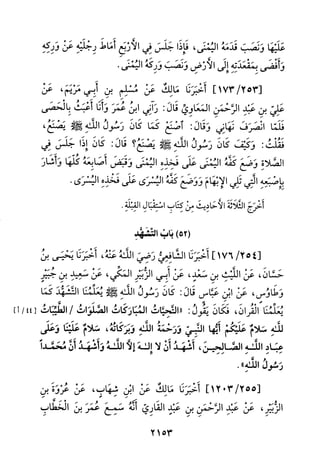 عَلَيْهَا وَنَصَبَ قَدَمَهُ الْيُمْنَى، فَإِذَا جَلَسَ فِي الْأَرْبَعِ أَمَاطَ رِجْلَيْهِ عَنْ وَرِكِهِ
وَأَفْضَى بِمَقْعَدَتِهِ إِلَى الْأَرْضِ وَنَصَبَ وَرِكَهُ الْيُمْنَى.
[١٧٣/٢٥٣] أَخْبَرَنَا مَالِكٌ عَنْ مُسْلِمِ بنِ أَبِي مَرْيَمَ، عَنْ
عَلِيِّ بنِ عَبْدِ الرَّحْمنِ المَعَاوِيِّ قَالَ: رَآنِي ابنُ عُمَرَ وَأَنَا أَعْبَثُ بِالْحَصَى
فَلَمَّا انْصَرَفَ نَهَانِي وَقَالَ: اصْنَعْ كَمَا كَانَ رَسُولُ اللهِ ﷺ يَصْنَعُ،
فَقُلْتُ: وَكَيْفَ كَانَ رَسُولُ اللهِ ﷺ يَصْنَعُ؟ قَالَ: كَانَ إِذَا جَلَسَ فِي
الصَّلَاةِ وَضَعَ كَفَّهُ الْيُمْنَى عَلَى فَخِذِهِ الْيُمْنَى وَقَبَضَ أَصَابِعَهُ كُلَّهَا وَأَشَارَ
بِإِصْبَعِهِ الَّتِي تَلِي الْإِبْهَامَ وَوَضَعَ كَفَّهُ الْيُسْرَى عَلَى فَخِذِهِ الْيُسْرَى.
أَخْرَجَ الثَّلَاثَةَ الْأَحَادِيثَ مِنْ كِتَابِ اسْتِقْبَالِ القِبْلَةِ.
(٥٢) بَابُ التَّشَهُّدِ
[١٧٦/٢٥٤] أَخْبَرَنَا الشَّافِعِيُّ رَضِيَ اللهُ عَنْهُ، أَخْبَرَنَا يَحْيَى بنُ
حَسَّانَ، عَنِ اللَّيْثِ بنِ سَعْدٍ، عَنْ أَبِي الزُّبَيْرِ المَكِّيِّ، عَنْ سَعِيدِ بنِ جُبَيْرٍ
وَطَاوُسٍ، عَنِ ابْنِ عَبَّاسٍ قَالَ: كَانَ رَسُولُ اللهِ ﷺ يُعَلِّمُنَا التَّشَهُّدَ كَمَا
يُعَلِّمُنَا الْقُرْآنَ، فَكَانَ يَقُولُ: «التَّحِيَّاتُ الْمُبَارَكَاتُ الصَّلَوَاتُ / الطَّيِّبَاتُ [٤٤/أ]
للهِ سَلَامٌ عَلَيْكُمْ أَيُّهَا النَّبِيُّ وَرَحْمَةُ اللهِ وَبَرَكَاتُهُ، سَلَامٌ عَلَيْنَا وَعَلَى
عِبَادِ اللهِ الصَّالِحِينَ، أَشْهَدُ أَنْ لَا إِلهَ إِلَّا اللهُ وَأَشْهَدُ أَنَّ مُحَمَّداً
رَسُولُ اللهِ».
[١٢٠٣/٢٥٥] أَخْبَرَنَا مَالِكٌ عَنْ ابْنِ شِهَابٍ، عَنْ عُرْوَةَ بنِ
الزُّبَيْرِ، عَنْ عَبْدِ الرَّحْمنِ بنِ عَبْدٍ القَارِيِّ أَنَّهُ سَمِعَ عُمَرَ بنَ الْخَطَّابِ
٢١٥٣